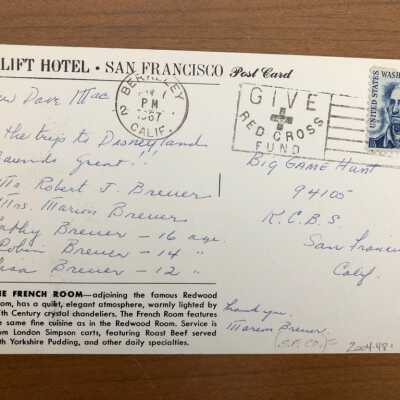 LIFT HOTEL • SAN FRANCISCO Post Card
Dave Mac
the trip to Disneyland
sounds great!!
Mr. Robert J. Breuer
Mrs. Marion Breuer
Cathy Breuer - 16 age
Robin Breuer - 14 "
Breuer - 12 "
BERKELEY
PM
2
1967
CALIF.
GIVE
RED CROSS
FUND
UNITED STATES
WASH
BIG GAME Hunt
94105
K.C.B.S.
San Francisc
Calif.
HE FRENCH ROOM—adjoining the famous Redwood
om, has a quiet, elegant atmosphere, warmly lighted by
th Century crystal chandeliers. The French Room features
e same fine cuisine as in the Redwood Room. Service is
om London Simpson carts, featuring Roast Beef served
th Yorkshire Pudding, and other daily specialties.
Thank you,
Marion Breuer
(S.F. CO.)